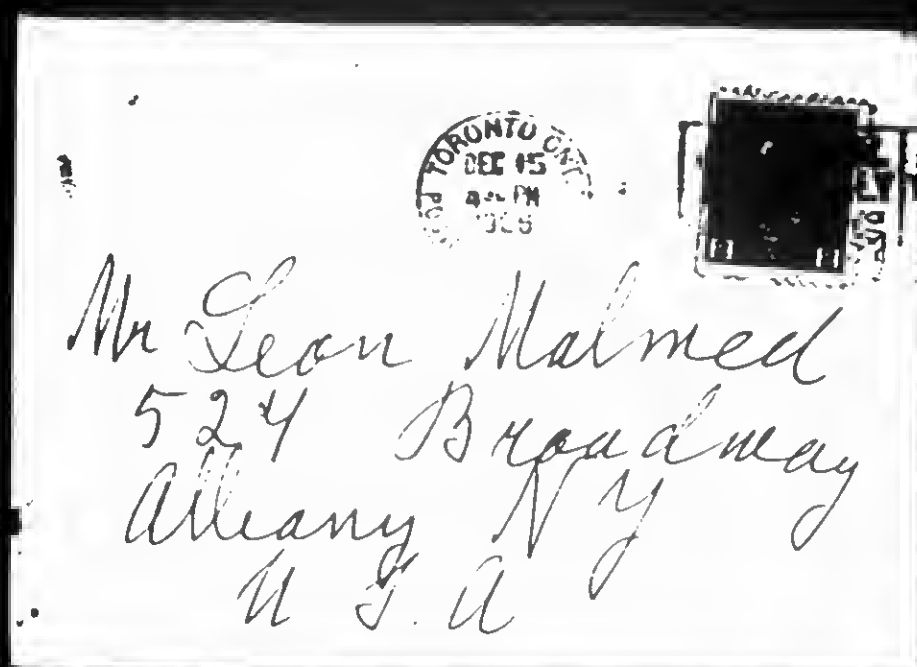 TORONTO ONT
DEC 15
PM
Mr Leon Malmed
524 Broadway
Albany N Y
U S. A